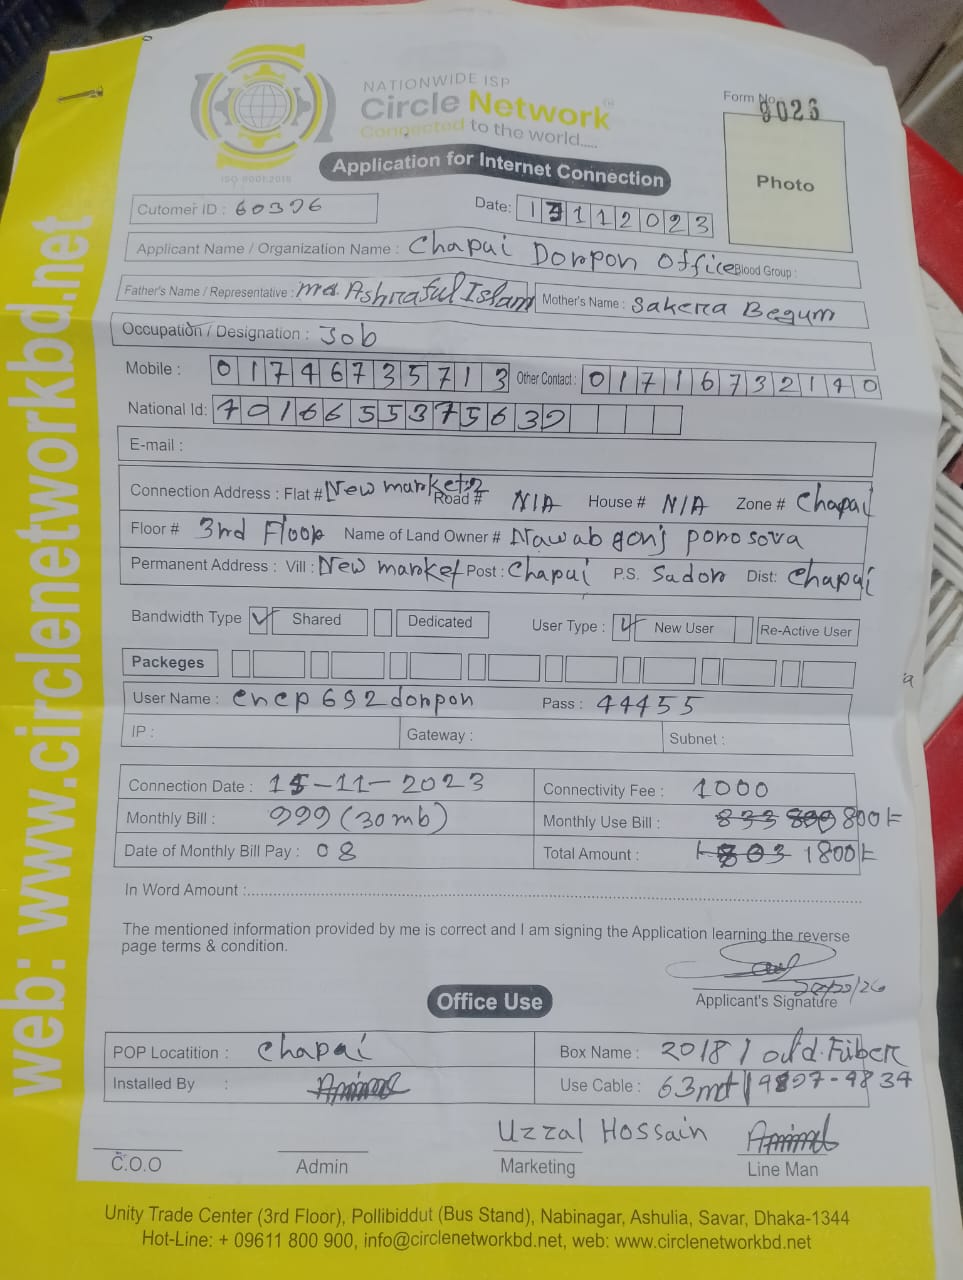 NATIONWIDE ISP
Circle Network
Connected to the world.....
ISO 9001:2015
Form No. 9026
Application for Internet Connection
Photo
Cutomer ID : 60376
Date: 1 1 1 2 0 2 3
Applicant Name / Organization Name : Chapai Donpon Office Blood Group :
Father's Name / Representative : md. Ashraful Islam Mother's Name : Sakera Begum
Occupation / Designation : Job
Mobile : 01746735713 Other Contact : 01716732140
National Id:
E-mail :
Connection Address : Flat # New market Road # N/A House # N/A Zone # Chapai
Floor # 3rd Floor Name of Land Owner # Nawabgonj porosova
Permanent Address : Vill : New market Post : Chapai P.S. Sador Dist: Chapai
Bandwidth Type ✓ Shared Dedicated User Type : ✓ New User Re-Active User
Packeges
User Name : cncp692donpon Pass : 44455
IP : Gateway : Subnet :
Connection Date : 15-11-2023 Connectivity Fee : 1000
Monthly Bill : 999 (30 mb) Monthly Use Bill : 833 800 800
Date of Monthly Bill Pay : 08 Total Amount : 1800
In Word Amount :
The mentioned information provided by me is correct and I am signing the Application learning the reverse
page terms & condition.
Applicant's Signature
Office Use
POP Locatition : Chapai Box Name : 2018 /
Installed By : Use Cable : 63mt 4834
Uzzal Hossain
C.O.O Admin Marketing Line Man
Unity Trade Center (3rd Floor), Pollibiddut (Bus Stand), Nabinagar, Ashulia, Savar, Dhaka-1344
Hot-Line: + 09611 800 900, info@circlenetworkbd.net, web: www.circlenetworkbd.net
web: www.circlenetworkbd.net